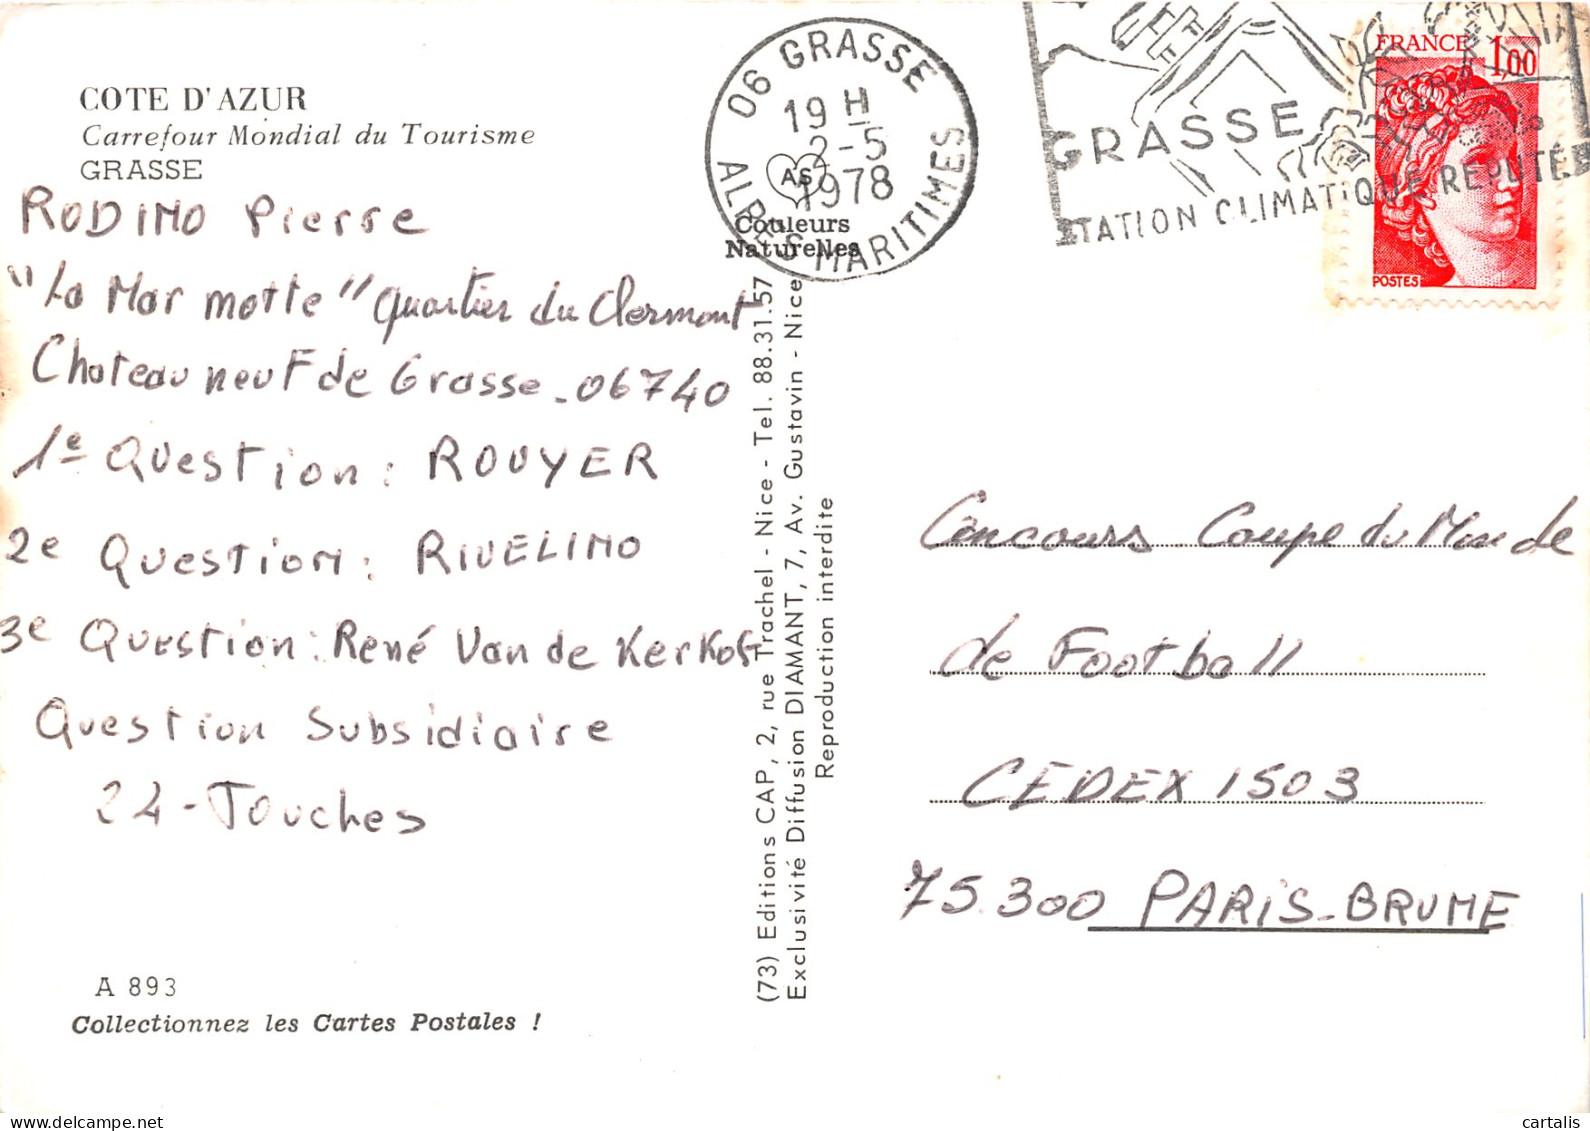 COTE D'AZUR
Carrefour Mondial du Tourisme
GRASSE
RODIMO Pierre
"La Mar motte" Quartier du Clermont
Chateau neuf de Grasse - 06740
1e Question : ROUYER
2e Question : RIVELINO
3e Question : René Van de Kerkoff
Question Subsidiaire
24 - Touches
A 893
Collectionnez les Cartes Postales !
06 GRASSE
19 H
2-5
1978
ALPES MARITIMES
AS
Couleurs
Naturelles
(73) Editions CAP, 2, rue Trachel - Nice - Tel. 88.31.57
Exclusivité Diffusion DIAMANT, 7, Av. Gustavin - Nice
Reproduction interdite
GRASSE
STATION CLIMATIQUE REPUTÉE
FRANCE 1,00
POSTES
Concours Coupe du Monde
de Football
CEDEX 1503
75.300 PARIS-BRUNE
cartalis